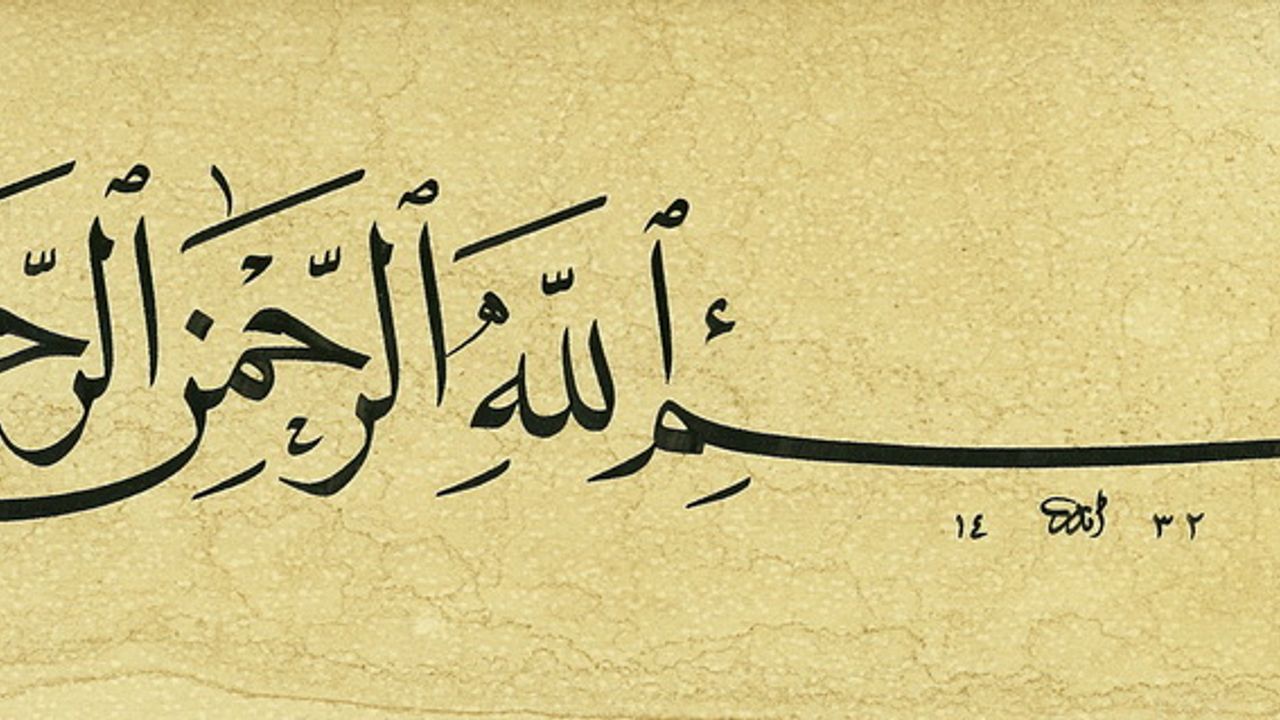 ـمِ ٱللَّهِ ٱلرَّحْمَٰنِ ٱلرَّحـ
١٤ ٣٢